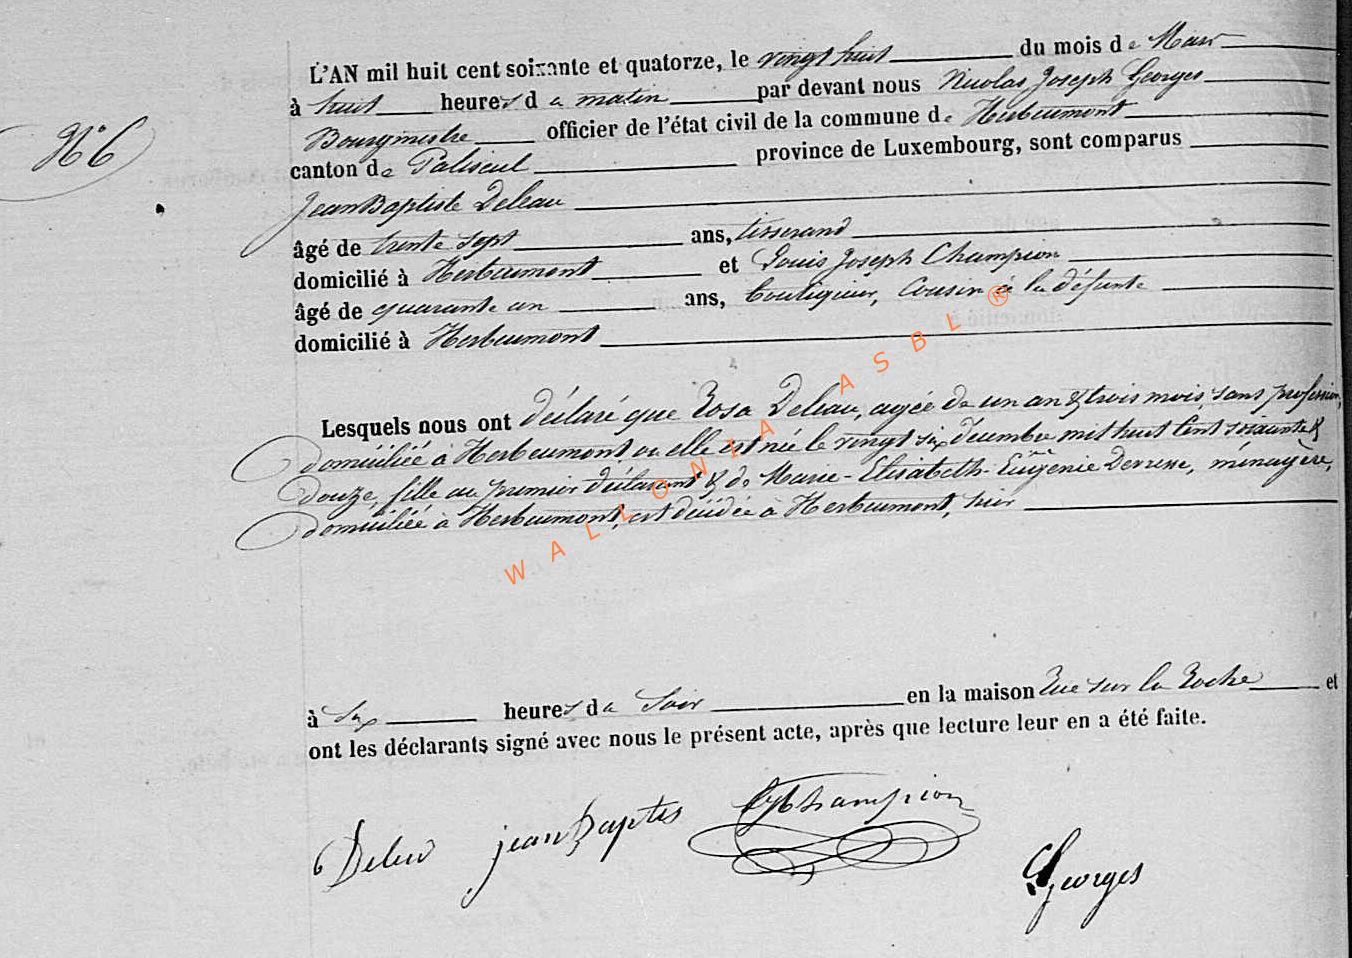 L'AN mil huit cent soixante et quatorze, le vingt huit du mois de Mars
à huit heures du matin par devant nous Nicolas Joseph Georges
Bourgmestre officier de l'état civil de la commune de Herbeumont
N° 6
canton de Paliseul province de Luxembourg, sont comparus
Jean Baptiste Deleau
âgé de trente sept ans, tisserand
domicilié à Herbeumont et Louis Joseph Champion
âgé de quarante un ans, boutiquier, Cousin à la défunte
domicilié à Herbeumont
Lesquels nous ont déclaré que Rosa Deleau, agée de un an & trois mois sans profession,
domiciliée à Herbeumont ou elle est née le vingt six décembre mil huit cent soixante &
douze, fille au premier déclarant & de Marie-Elisabeth-Eugènie, ménagère,
domiciliée à Herbeumont, est décédée à Herbeumont, hier
à Six heures du Soir en la maison Rue sur la Roche et
ont les déclarants signé avec nous le présent acte, après que lecture leur en a été faite.
jean Baptis Champion
Georges
WALLONIA ASBL ®